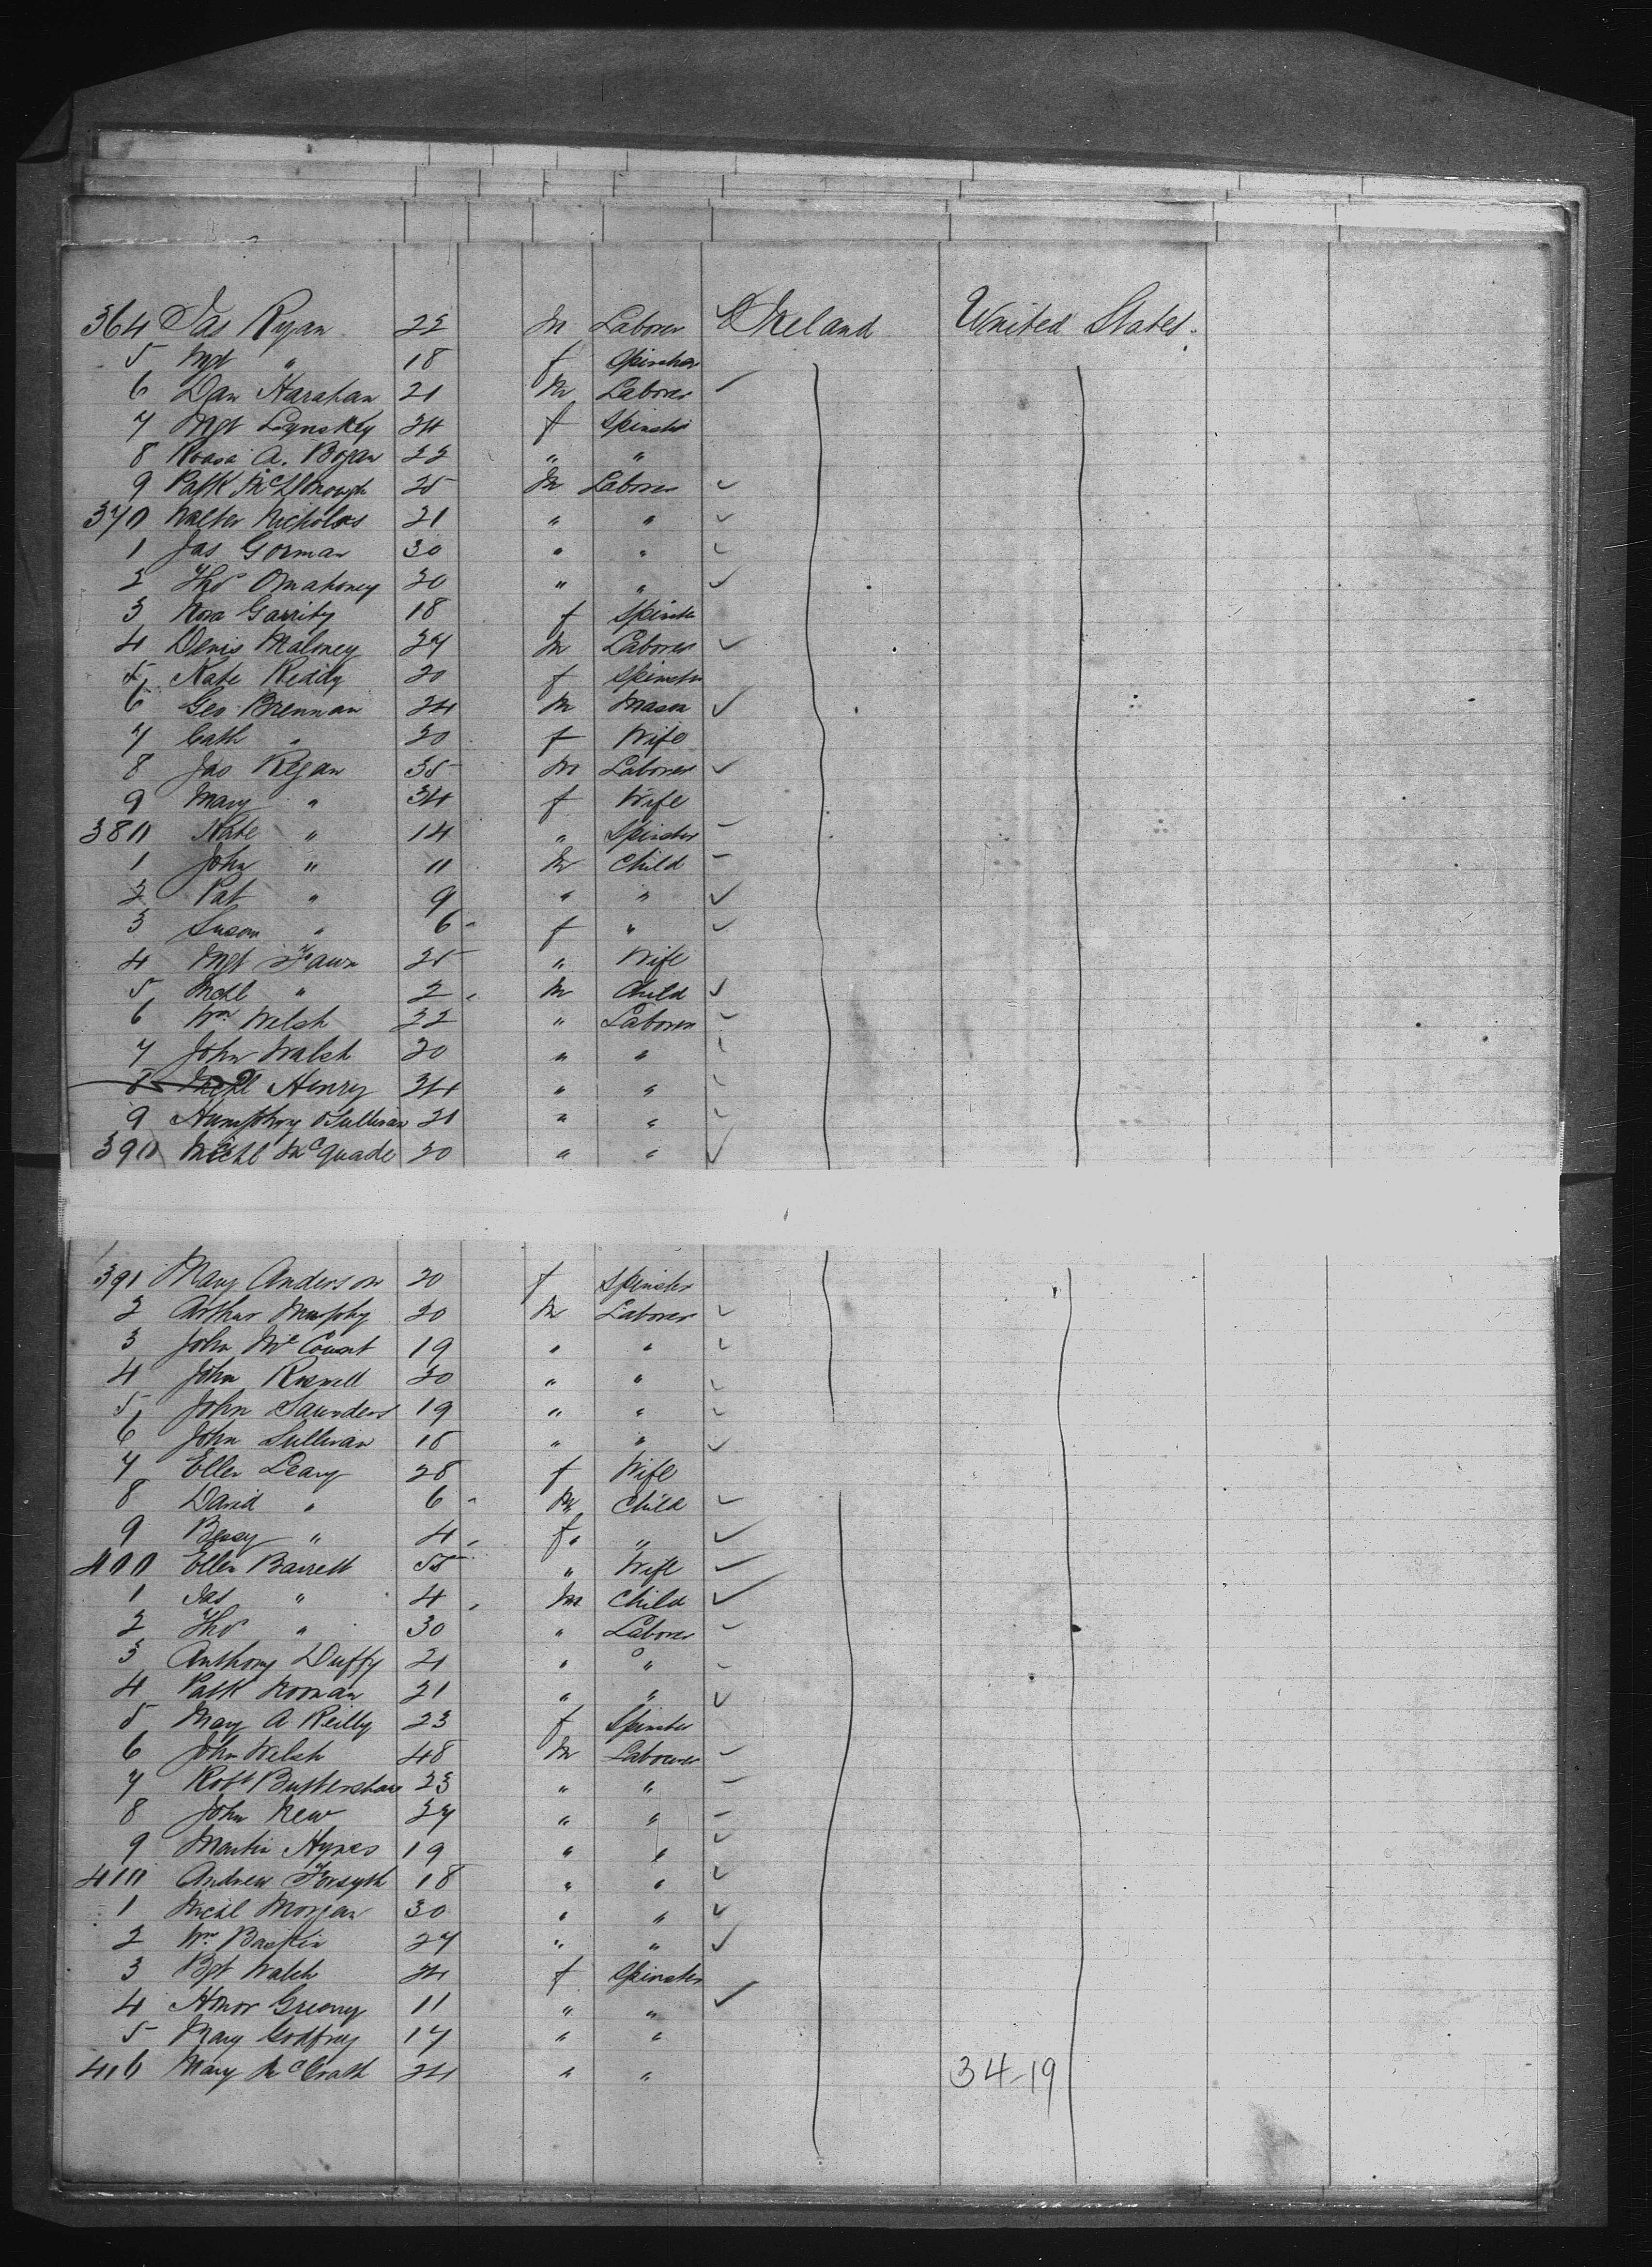 364 Jas Ryan 22 M Laborer Ireland United States.
5 Mgt " 18 f Spinster
6 Dan Harahan 21 M Laborer
7 Mgt Lynskey 24 f Spinster
8 A. 22 " "
9 Patk McDonough 25 M Laborer
370 Walter Nicholas 21 " "
1 Jas Gorman 30 " "
2 Thos Omahoney 20 " "
3 Nora Garrity 18 f Spinster
4 Denis Maloney 27 M Laborer
5 Kate Reddy 20 f Spinster
6 Geo Brennan 24 M Mason
7 Cath " 20 f Wife
8 Jas Regan 35 M Laborer
9 Mary " 34 f Wife
380 Kate " 14 " Spinster
1 John " 11 M Child
2 Pat " 9 " "
3 Susan " 6 f "
4 Mgt 25 " Wife
5 Michl " 2 M Child
6 Wm Welsh 22 " Laborer
7 John Walsh 20 " "
8 Michl Henry 24 " "
9 Humphry OSullivan 21 " "
390 Michl McQuade 20 " "
391 Mary Anderson 20 f Spinster
2 Arthur Murphy 20 M Laborer
3 John McCourt 19 " "
4 John 20 " "
5 John Saunders 19 " "
6 John Sullivan 18 " "
7 Ellen Leary 28 f Wife
8 David " 6 M Child
9 Bessy " 4 f "
400 Ellen Barrett 55 " Wife
1 Jas " 4 M Child
2 Thos " 30 " Laborer
3 Anthony Duffy 21 " "
4 Patk Noonan 21 " "
5 Mary A Reilly 23 f Spinster
6 John Welsh 48 M Labourer
7 Robt Buttershaw 23 " "
8 John New 27 " "
9 Martin Hynes 19 " "
410 Andrew Forsyth 18 " "
1 Michl Morgan 30 " "
2 Wm Baskin 27 " "
3 Bgt Walsh 24 f Spinster
4 Honor Greany 11 " "
5 Mary Godfrey 17 " "
416 Mary McGrath 24 " "
34-19